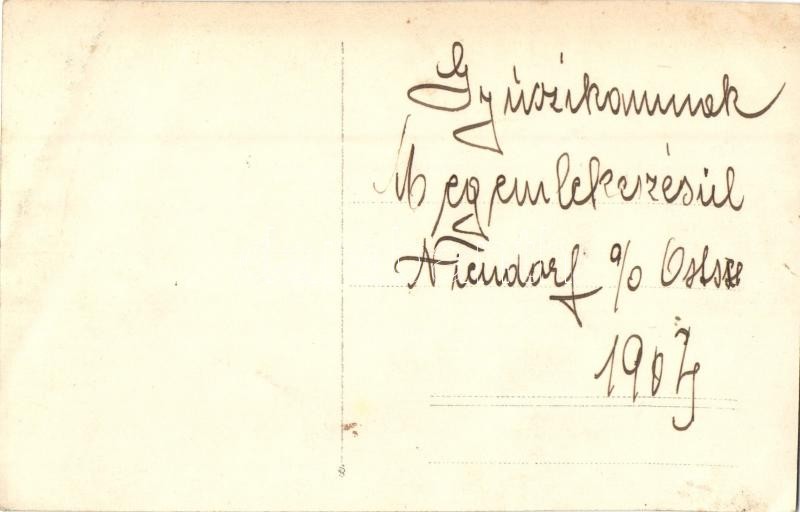 Gyúszikamnak
Megemlekeszésül
Niendorf a/o Ostsee
1907